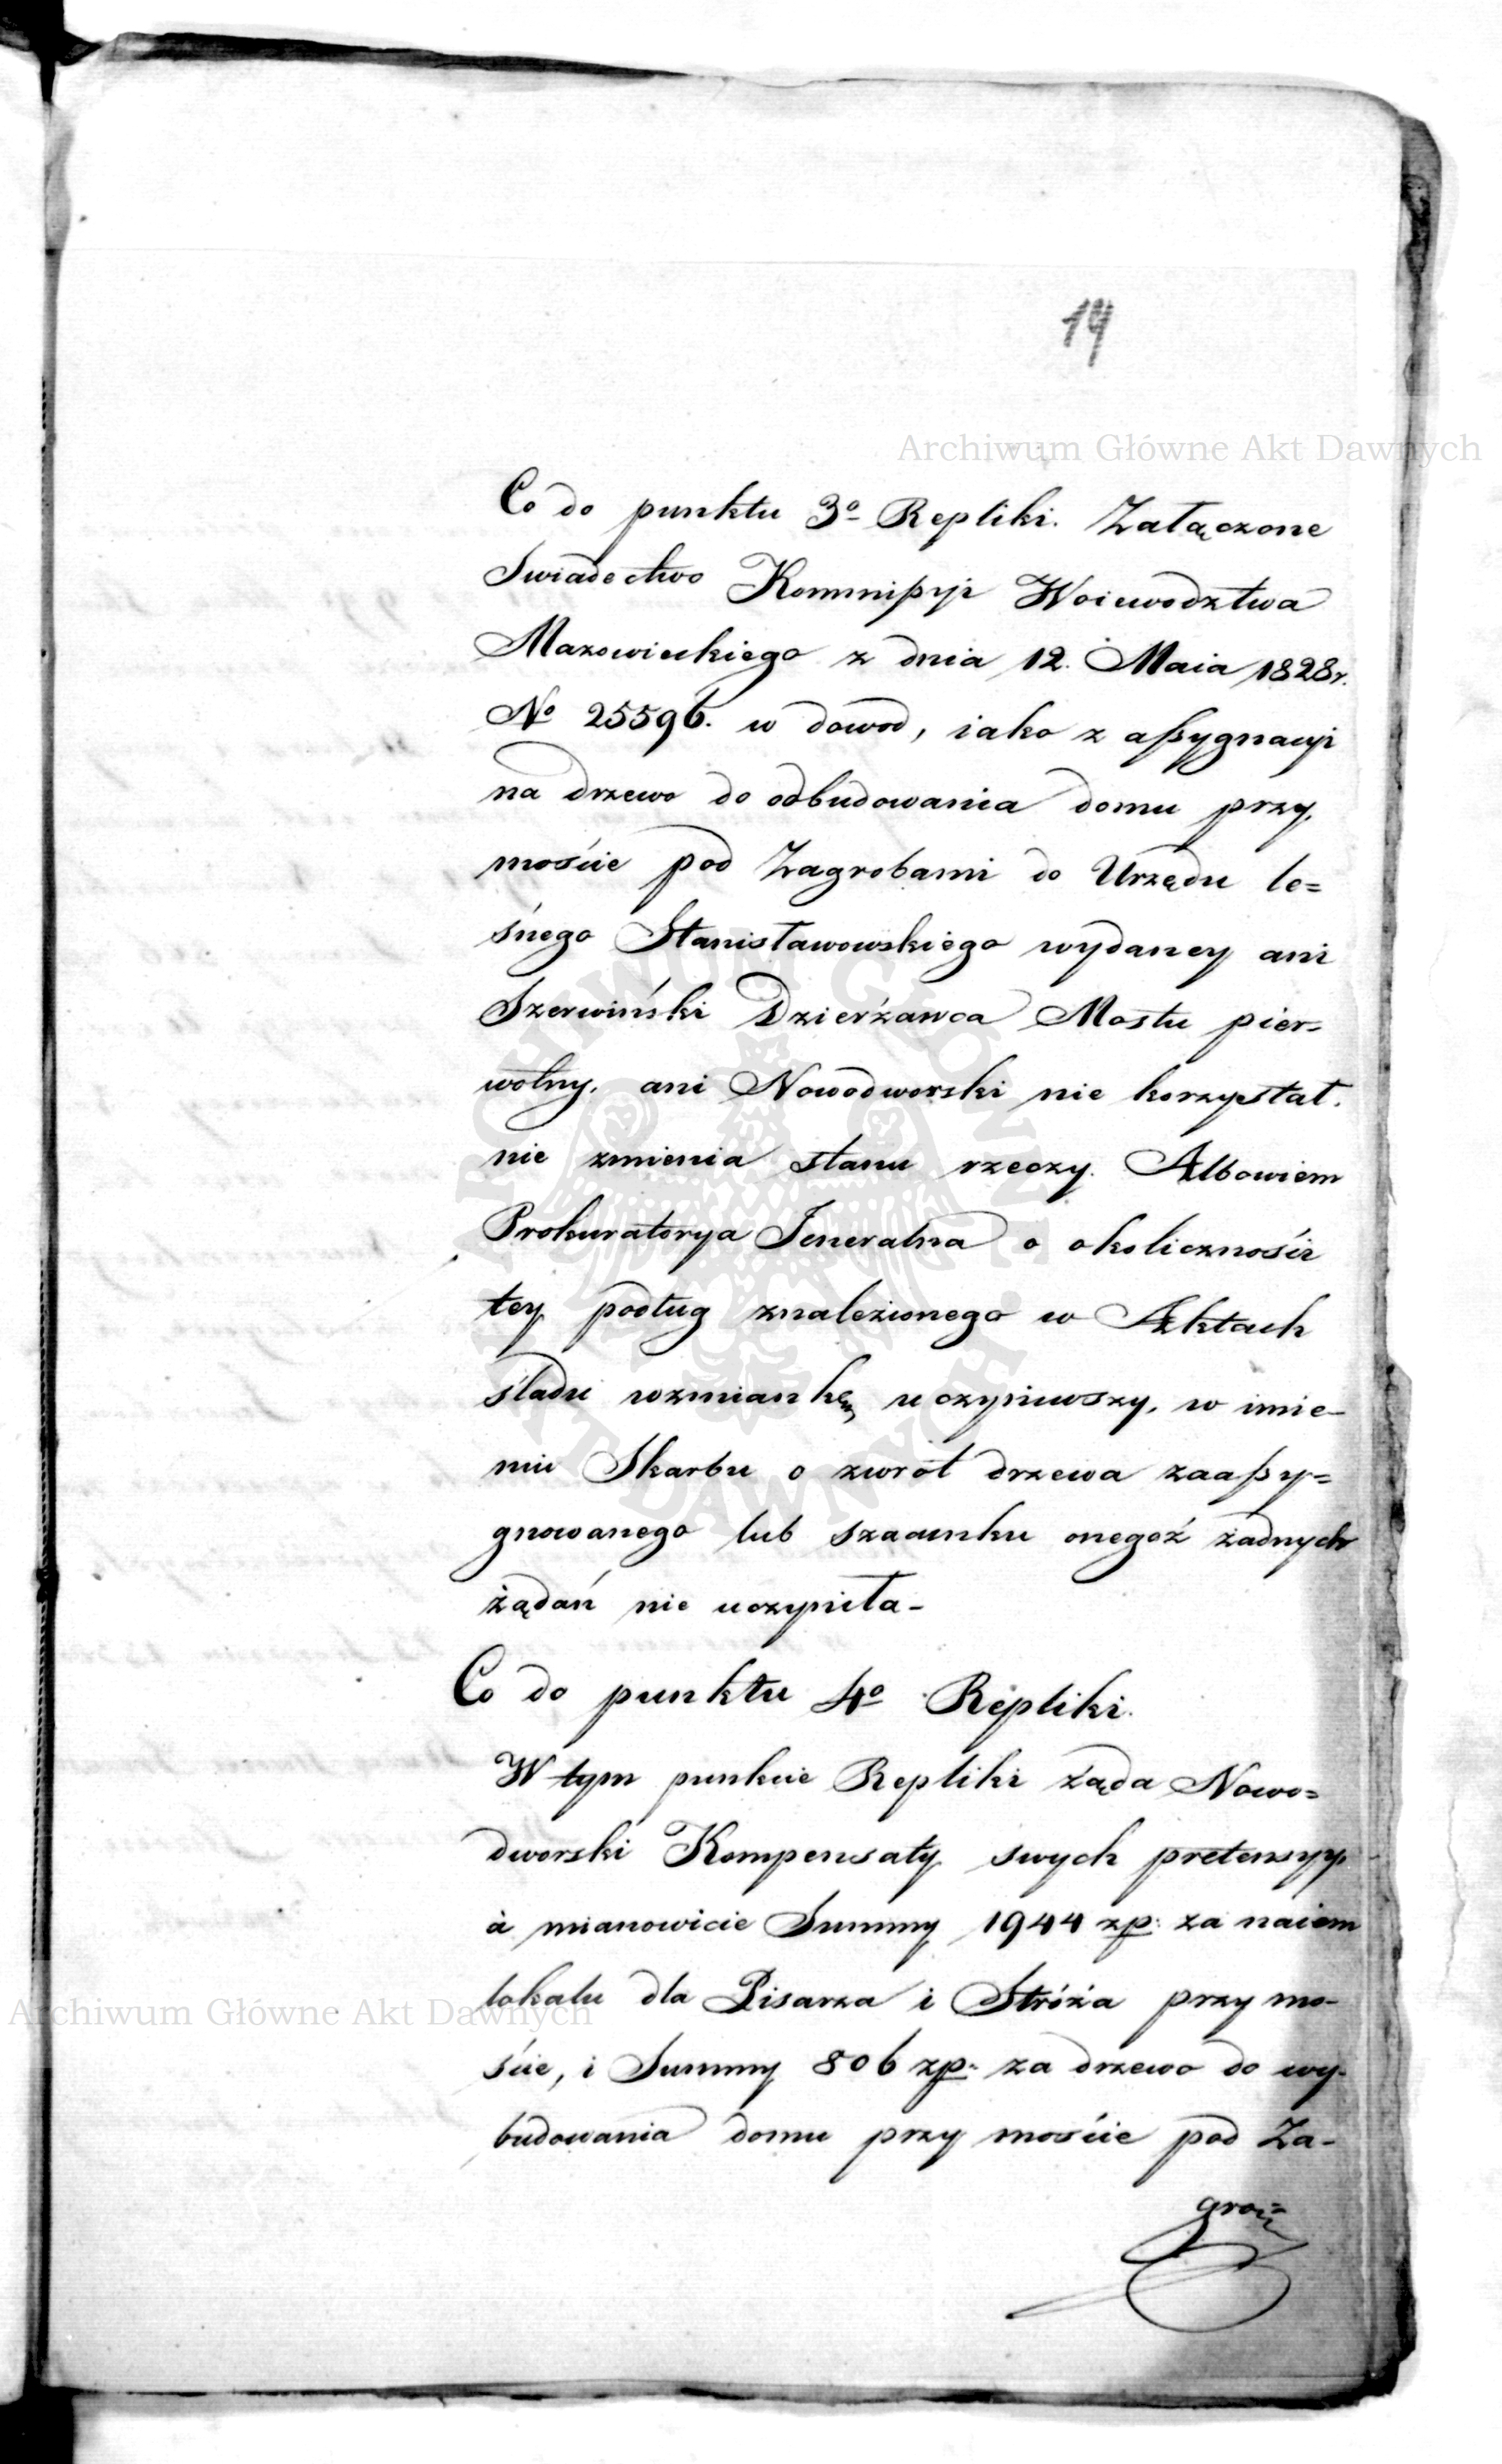 19
Archiwum Główne Akt Dawnych
Co do punktu 3º Repliki. Załączone
Swiadectwo Kommißyi Woiewodztwa
Mazowieckiego z dnia 12. Maia 1828r.
Nº 25596. w dowod, iako z aßygnacyi
na drzewo do odbudowania domu przy
mościе pod Zagrobami do Urzędu le=
śnego Stanisławowskiego wydaney ani
Szerwiński Dzierżawca Mostu pier=
wotny, ani Nowodworski nie korzystał.
nie zmienia stanu rzeczy. Albowiem
Prokuratorya Jeneralna o okoliczności
tey podług znalezionego w Aktach
śladu wzmiankę uczyniwszy, w imie-
niu Skarbu o zwrót drzewa zaaßy=
gnowanego lub szacunku onegoż żadnych
żądań nie uczyniła-
Co do punktu 4º Repliki.
W tym punkcie Repliki żąda Nowo=
dworski Kompensaty swych pretensyy
à mianowicie Summy 1944 zp: za naiem
lokalu dla Pisarza i Stróża przy mo-
ście, i Summy 806 zp: za drzewo do wy-
budowania domu przy moście pod Za-
Archiwum Główne Akt Dawnych
ARCHIWUM GŁÓWNE AKT DAWNYCH